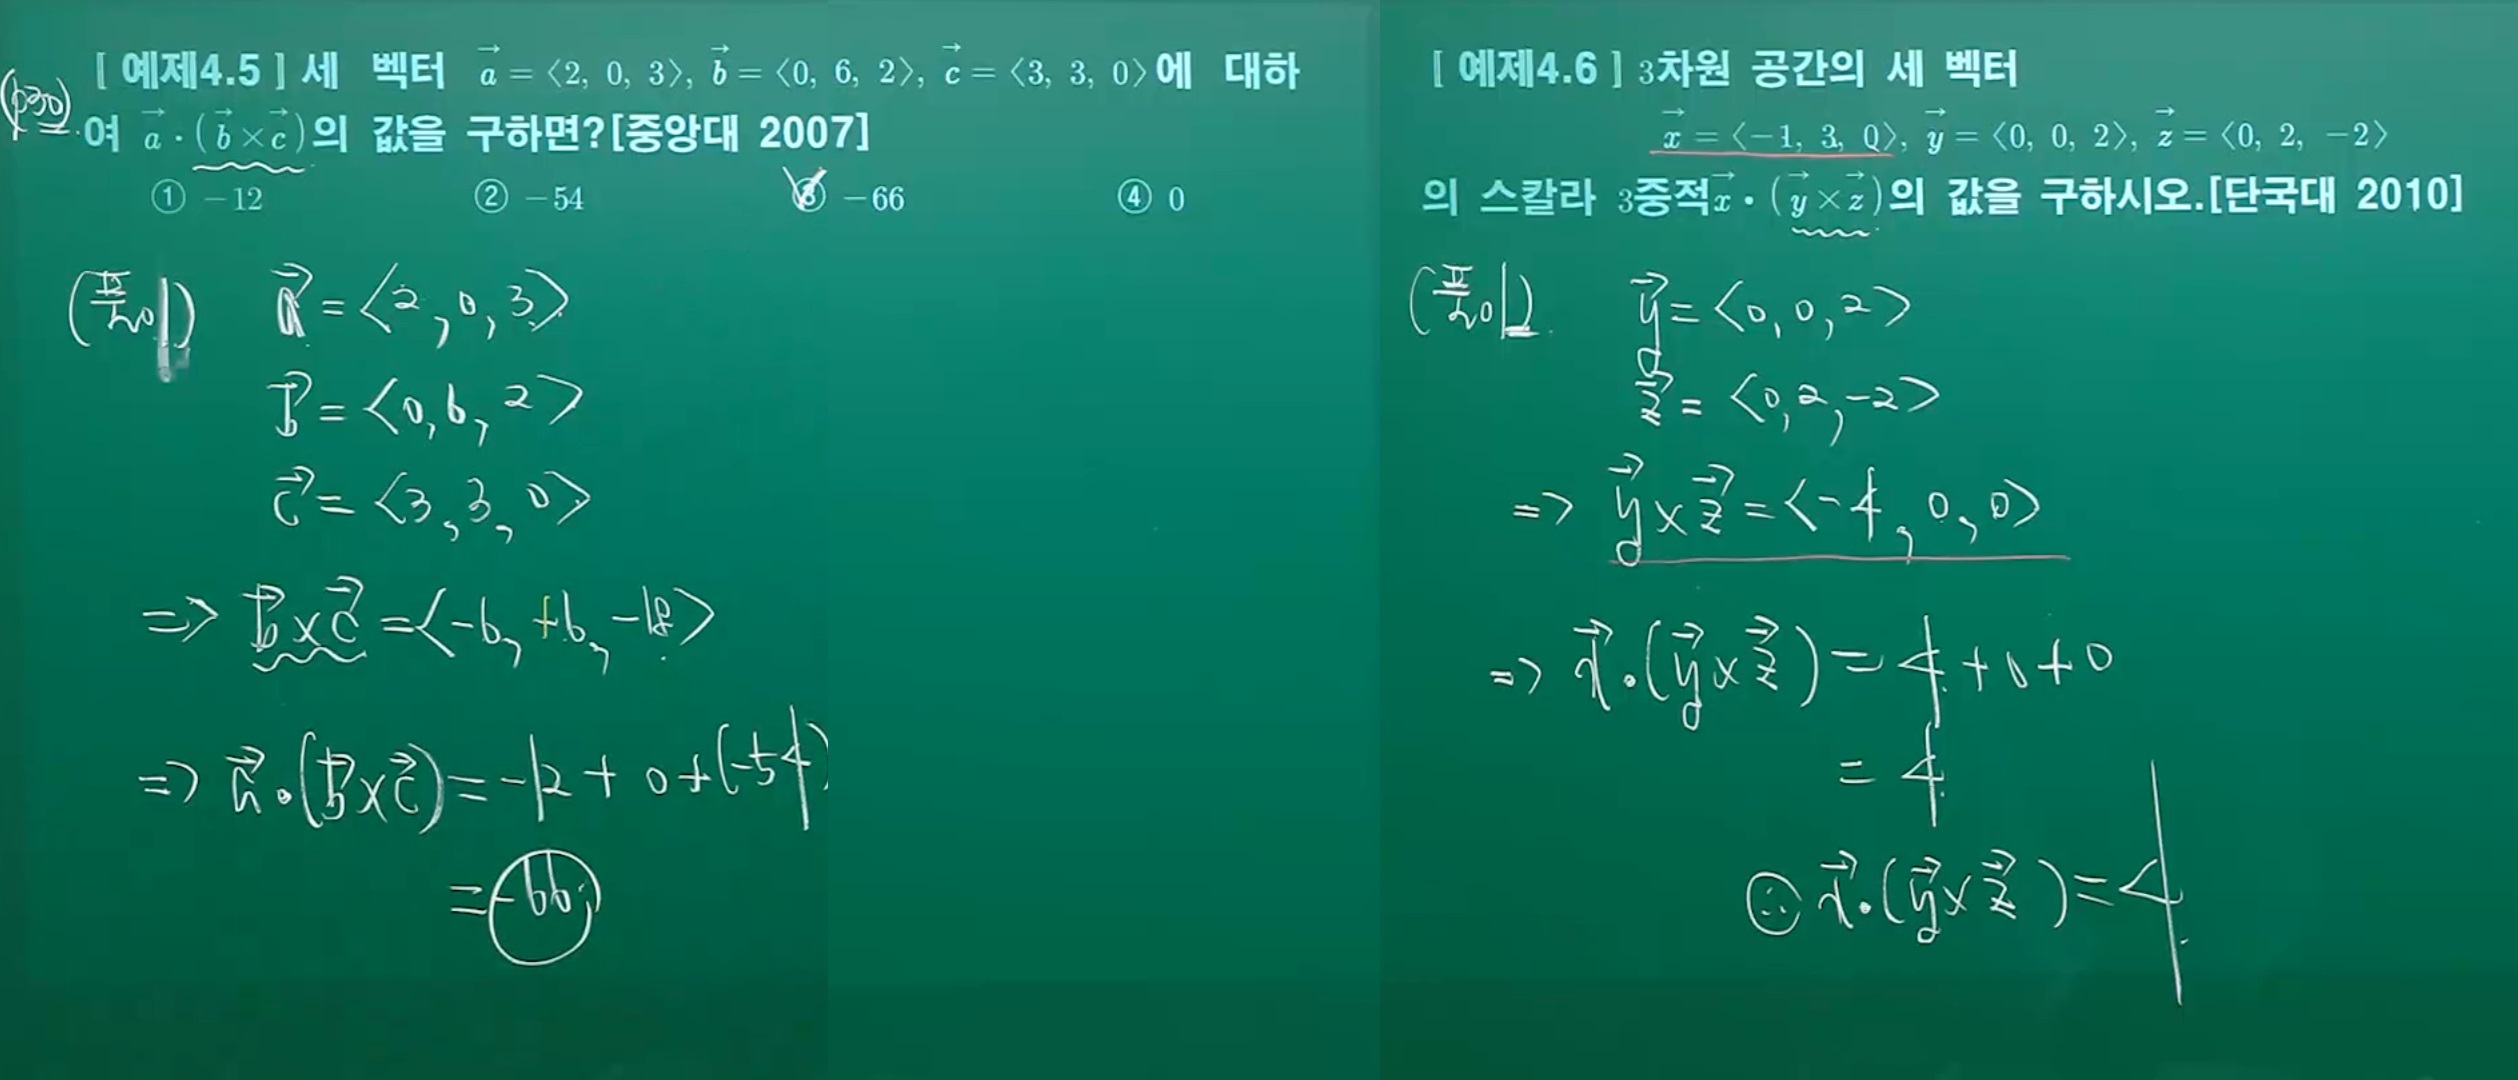 [예제4.5] 세 벡터 a⃗ = ⟨2, 0, 3⟩, b⃗ = ⟨0, 6, 2⟩, c⃗ = ⟨3, 3, 0⟩에 대하
(p30)
여 a⃗ · (b⃗ × c⃗)의 값을 구하면?[중앙대 2007]
① −12 ② −54 ③ −66 ④ 0
(풀이) a⃗ = <2, 0, 3>
b⃗ = <0, 6, 2>
c⃗ = <3, 3, 0>
=> b⃗ × c⃗ = <-6, +6, -18>
=> a⃗ · (b⃗ × c⃗) = -12 + 0 + (-54)
= -66
[예제4.6] 3차원 공간의 세 벡터
x⃗ = ⟨−1, 3, 0⟩, y⃗ = ⟨0, 0, 2⟩, z⃗ = ⟨0, 2, −2⟩
의 스칼라 3중적 x⃗ · (y⃗ × z⃗)의 값을 구하시오.[단국대 2010]
(풀이) y⃗ = <0, 0, 2>
z⃗ = <0, 2, -2>
=> y⃗ × z⃗ = <-4, 0, 0>
=> x⃗ · (y⃗ × z⃗) = 4 + 0 + 0
= 4
∴ x⃗ · (y⃗ × z⃗) = 4